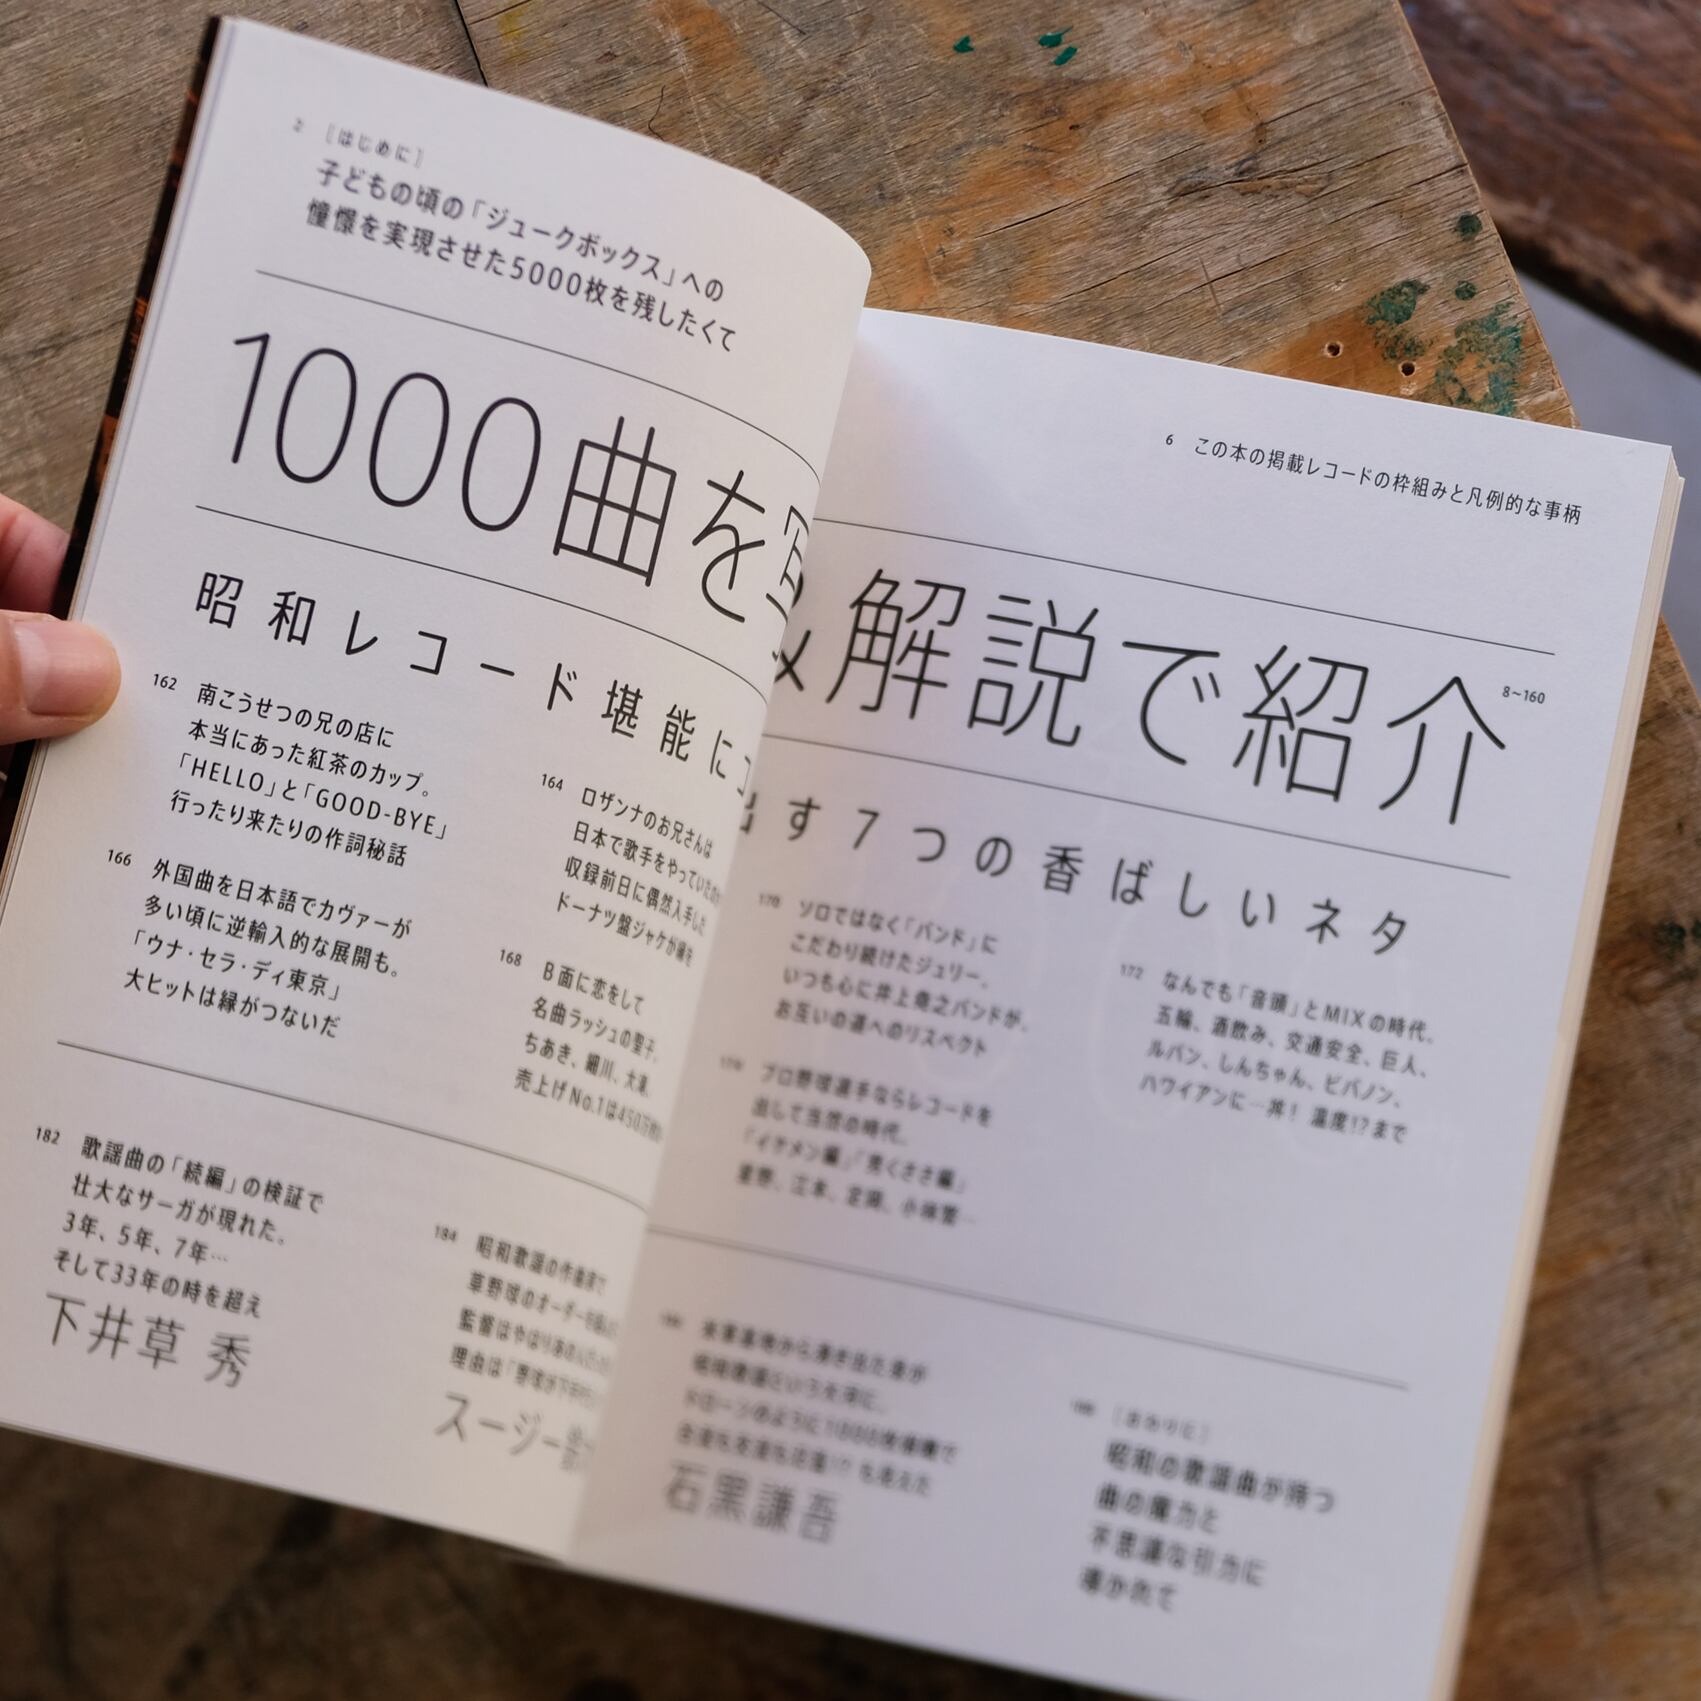 2 [はじめに]
子どもの頃の「ジュークボックス」への
憧憬を実現させた5000枚を残したくて
1000曲を写
昭和レコード堪能に
162 南こうせつの兄の店に
本当にあった紅茶のカップ。
「HELLO」と「GOOD-BYE」
行ったり来たりの作詞秘話
164 ロザンナのお兄さんは
日本で歌手をやっていた
収録前日に偶然入手した
ドーナツ盤ジャケが
166 外国曲を日本語でカヴァーが
多い頃に逆輸入的な展開も。
「ウナ・セラ・ディ東京」
大ヒットは縁がつないだ
168 B面に恋をして
名曲ラッシュの聖子、
ちあき、細川、大瀧、
売上げNo.1は450万枚
182 歌謡曲の「続編」の検証で
壮大なサーガが現れた。
3年、5年、7年…
そして33年の時を超え
下井草 秀
184 昭和歌謡の作曲家で
草野球のオーダーを
監督はやはりあの人
理由は「野球が
スージー鈴
6 この本の掲載レコードの枠組みと凡例的な事柄
解説で紹介 8~160
出す7つの香ばしいネタ
170 ソロではなく「バンド」に
こだわり続けたジュリー。
いつも心に井上堯之バンドが。
お互いの道へのリスペクト
172 なんでも「音頭」とMIXの時代。
五輪、酒飲み、交通安全、巨人、
ルパン、しんちゃん、ビバノン、
ハワイアンに…丼! 温度!?まで
174 プロ野球選手ならレコードを
出して当然の時代。
「イケメン編」「驚くささ編」
星野、江本、定岡、小林繁…
ドローンのように1000枚俯瞰で
石黒謙吾
[おわりに]
昭和の歌謡曲が持つ
曲の魔力と
不思議な引力に
導かれて